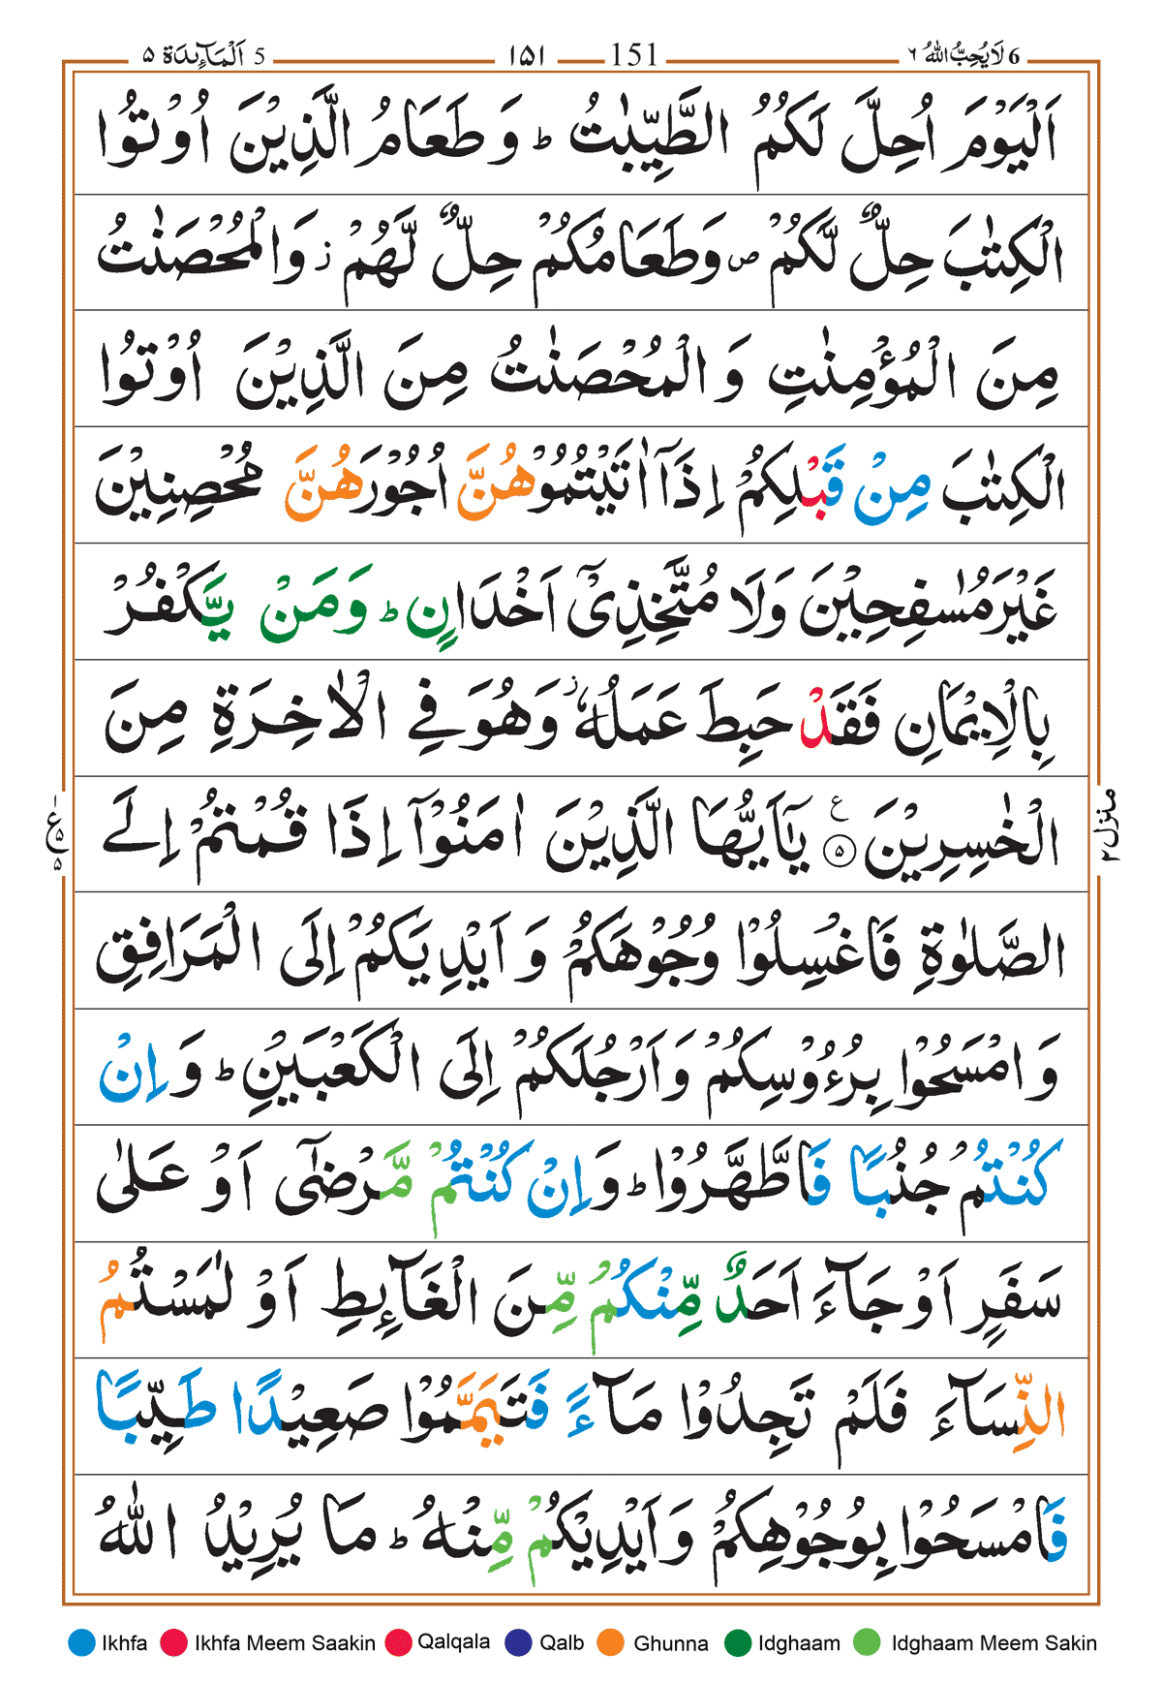 6 لَا يُحِبُّ اللّٰهُ ٦ 151 ١٥١ 5 اَلْمَآئِدَة ٥
اَلْيَوْمَ اُحِلَّ لَكُمُ الطَّيِّبٰتُ ؕ وَ طَعَامُ الَّذِيْنَ اُوْتُوا
الْكِتٰبَ حِلٌّ لَّكُمْ ۪ وَطَعَامُكُمْ حِلٌّ لَّهُمْ ؗ وَالْمُحْصَنٰتُ
مِنَ الْمُؤْمِنٰتِ وَ الْمُحْصَنٰتُ مِنَ الَّذِيْنَ اُوْتُوا
الْكِتٰبَ مِنْ قَبْلِكُمْ اِذَاۤ اٰتَيْتُمُوْهُنَّ اُجُوْرَهُنَّ مُحْصِنِيْنَ
غَيْرَ مُسٰفِحِيْنَ وَلَا مُتَّخِذِيْۤ اَخْدَانٍ ؕ وَمَنْ يَّكْفُرْ
بِالْاِيْمَانِ فَقَدْ حَبِطَ عَمَلُهٗ ؗ وَهُوَ فِي الْاٰخِرَةِ مِنَ
الْخٰسِرِيْنَ ۝٥ ع يٰۤاَيُّهَا الَّذِيْنَ اٰمَنُوْۤا اِذَا قُمْتُمْ اِلَى
الصَّلٰوةِ فَاغْسِلُوْا وُجُوْهَكُمْ وَ اَيْدِيَكُمْ اِلَى الْمَرَافِقِ
وَ امْسَحُوْا بِرُءُوْسِكُمْ وَاَرْجُلَكُمْ اِلَى الْكَعْبَيْنِ ؕ وَ اِنْ
كُنْتُمْ جُنُبًا فَاطَّهَّرُوْا ؕ وَ اِنْ كُنْتُمْ مَّرْضٰۤى اَوْ عَلٰى
سَفَرٍ اَوْ جَآءَ اَحَدٌ مِّنْكُمْ مِّنَ الْغَآئِطِ اَوْ لٰمَسْتُمُ
النِّسَآءَ فَلَمْ تَجِدُوْا مَآءً فَتَيَمَّمُوْا صَعِيْدًا طَيِّبًا
فَامْسَحُوْا بِوُجُوْهِكُمْ وَاَيْدِيْكُمْ مِّنْهُ ؕ مَا يُرِيْدُ اللّٰهُ
منزل ٢
ع ٥ ٥
Ikhfa Ikhfa Meem Saakin Qalqala Qalb Ghunna Idghaam Idghaam Meem Sakin